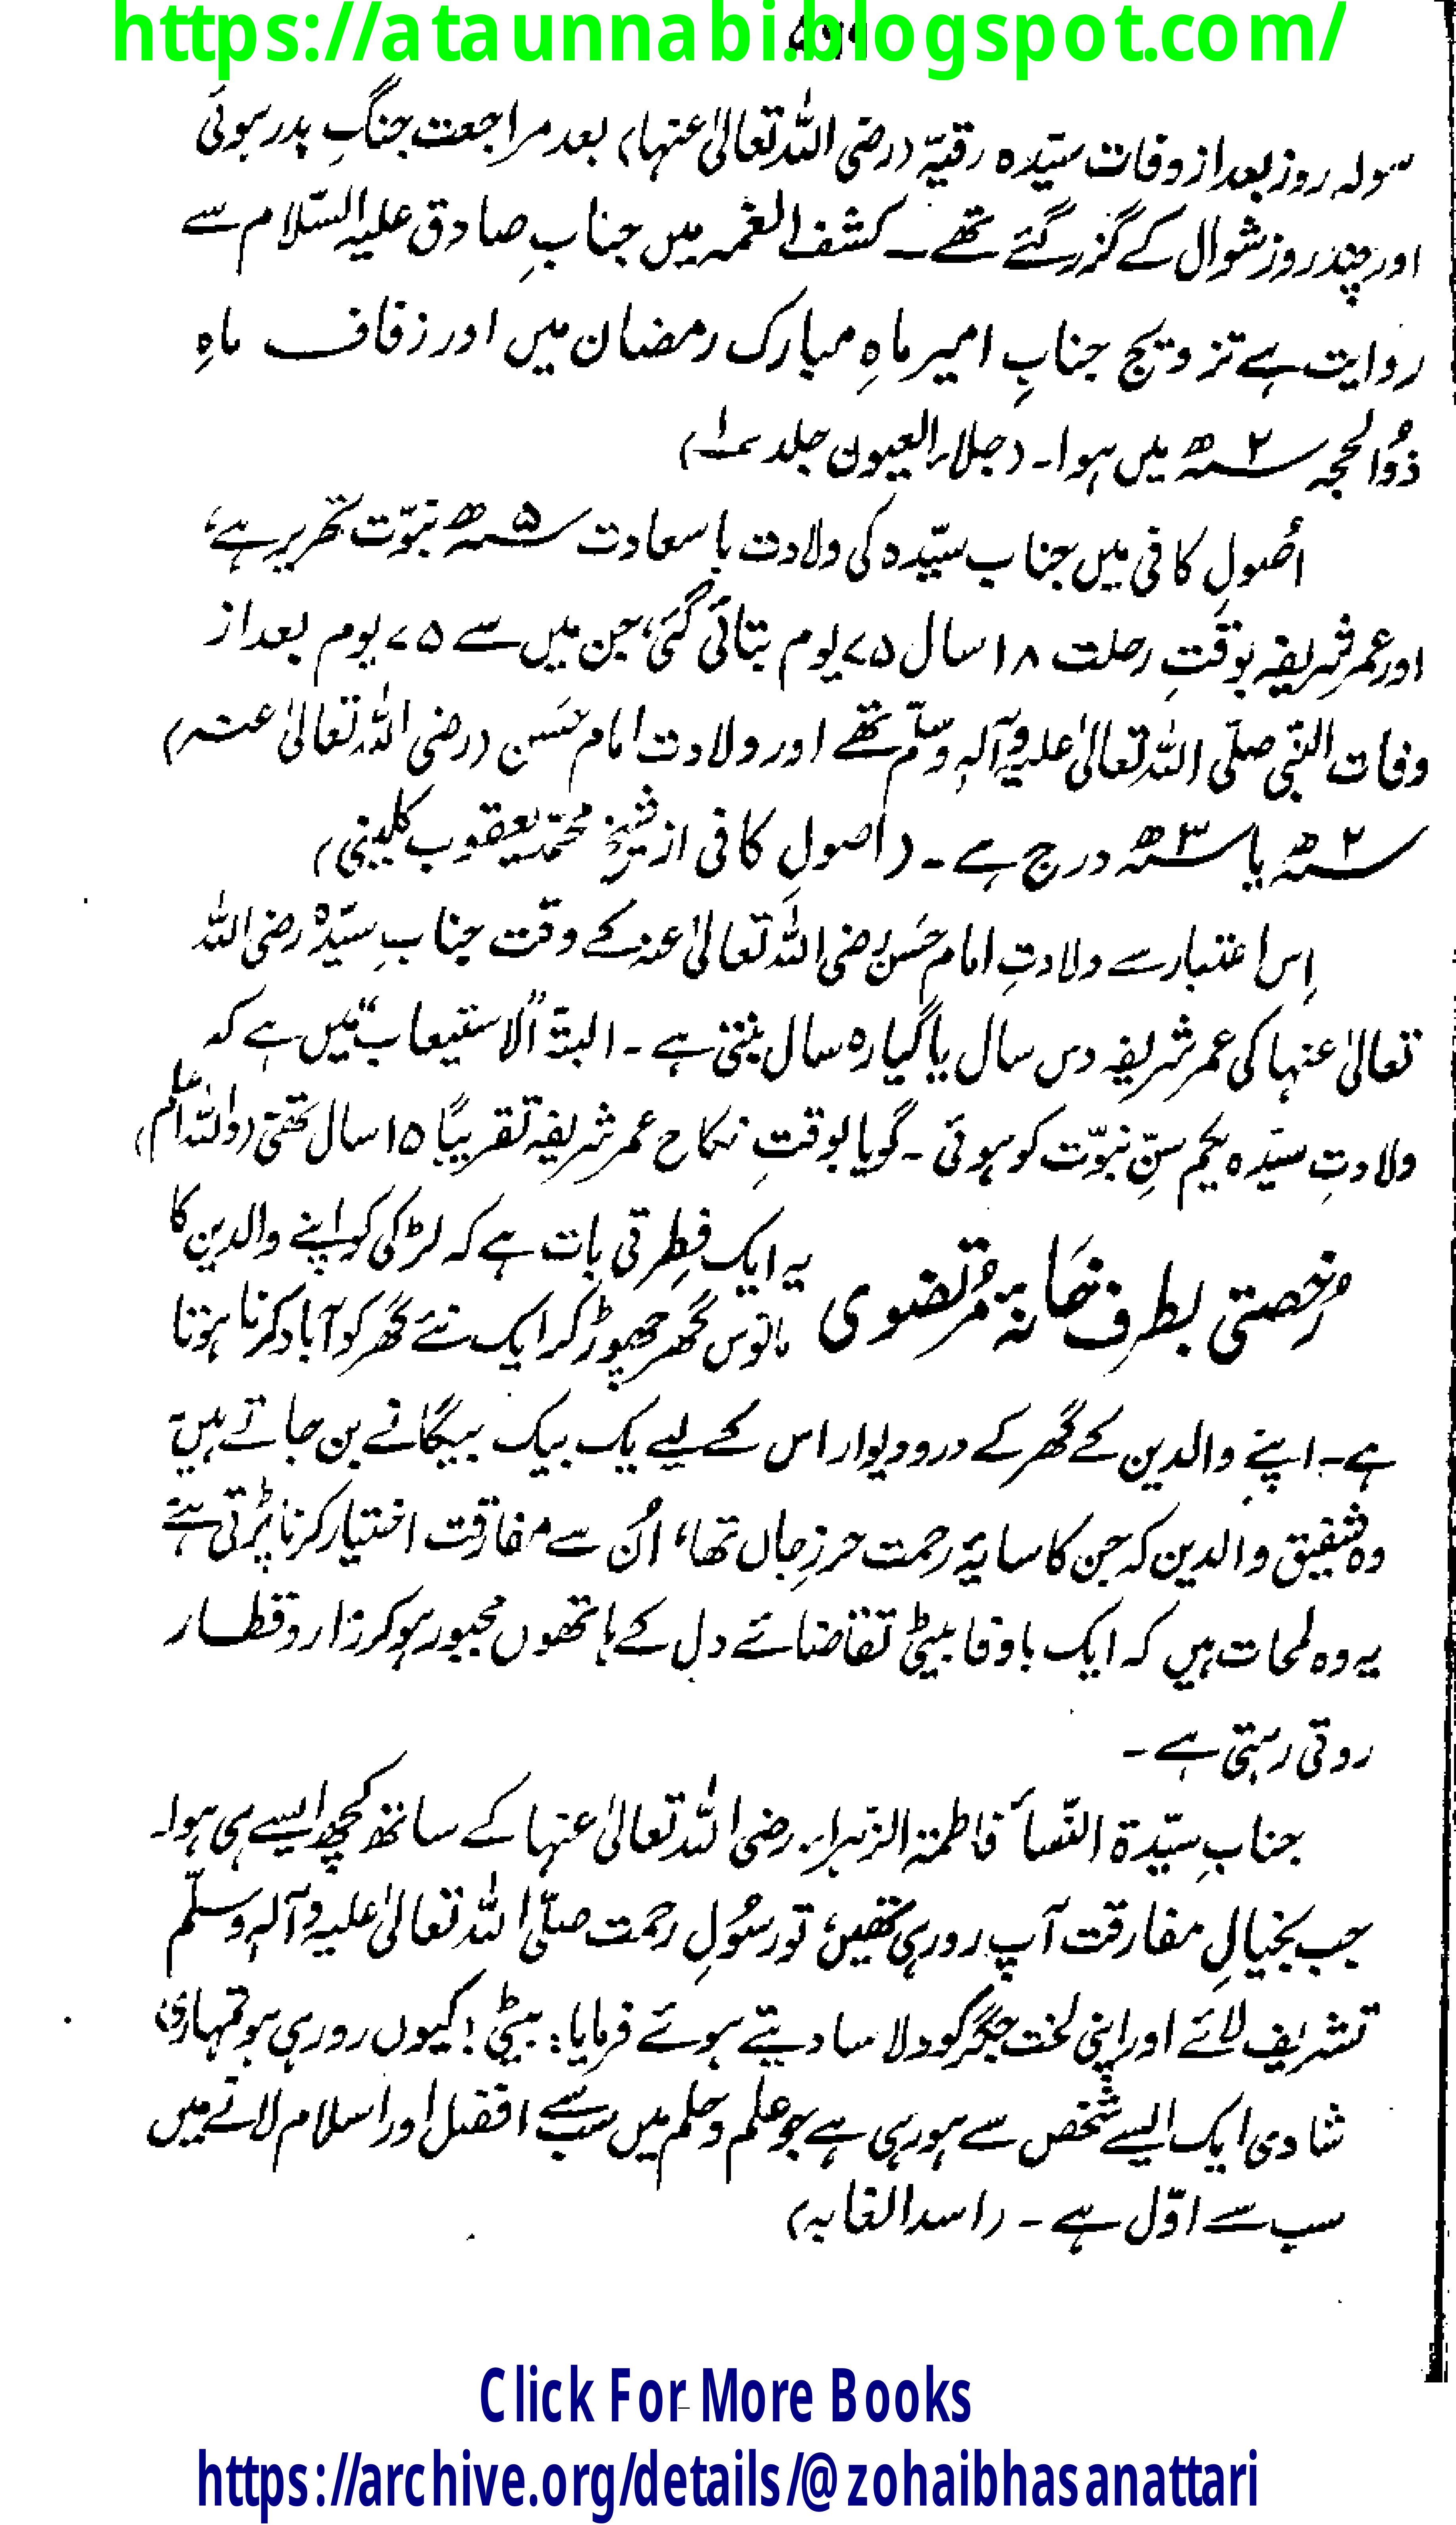 https://ataunnabi.blogspot.com/
سولہ روز بعد از وفات سیّدہ رقیہّ (رضی اللہ تعالیٰ عنہا) بعد مراجعت جنگِ بدر ہوئی
اور چند روز شوال کے گزر گئے تھے۔ کشف الغمہ میں جنابِ صادق علیہ السّلام سے
روایت ہے تزویج جنابِ امیر ماہِ مبارک رمضان میں اور زفاف ماہِ
ذوُالحجہ ۲ھ میں ہوا۔ (جلاء العیون جلد ۱)
اُصولِ کافی میں جناب سیّدہ کی ولادت باسعادت ۵ھ نبوّت تحریر ہے،
اور عمر شریفہ بوقتِ رحلت ۱۸ سال ۷۵ یوم بتائی گئی، جن میں سے ۷۵ یوم بعد از
وفات النّبی صلّی اللہ تعالیٰ علیہ وآلہٖ وسلّم تھے اور ولادت امام حسَن (رضی اللہ تعالیٰ عنہ)
۲ھ یا ۳ھ درج ہے۔ (اصولِ کافی از شیخ محمّد یعقوب کلینی)
اِس اعتبار سے ولادتِ امام حسَن رضی اللہ تعالیٰ عنہ کے وقت جنابِ سیّدہ رضی اللہ
تعالیٰ عنہا کی عمر شریفہ دس سال یا گیارہ سال بنتی ہے۔ البتہّ ”الاستیعاب“ میں ہے کہ
ولادتِ سیّدہ یکم سنِّ نبوّت کو ہوئی۔ گویا بوقتِ نکاح عمر شریفہ تقریباً ۱۵ سال تھی (واللہ اعلم)
رُخصتی بطرفِ خانۂ مُرتضوی
یہ ایک فِطرتی بات ہے کہ لڑکی کو اپنے والدین کا
مانوس گھر چھوڑ کر ایک نئے گھر کو آباد کرنا ہوتا
ہے۔ اپنے والدین کے گھر کے در و دیوار اس کے لیے یک بیک بیگانے بن جاتے ہیں
وہ شفیق والدین کہ جن کا سایۂ رحمت حرزِ جاں تھا، اُن سے مفارقت اختیار کرنا پڑتی ہے
یہ وہ لمحات ہیں کہ ایک باوفا بیٹی تقاضائے دل کے ہاتھوں مجبور ہو کر زار و قطار
روتی رہتی ہے۔
جنابِ سیّدۃ النّسأ فاطمۃ الزّہراء رضی اللہ تعالیٰ عنہا کے ساتھ کچھ ایسے ہی ہوا۔
جب بخیالِ مفارقت آپ رو رہی تھیں، تو رسُولِ رحمت صلّی اللہ تعالیٰ علیہ وآلہٖ وسلّم
تشریف لائے اور اپنی لختِ جگر کو دلاسا دیتے ہوئے فرمایا: بیٹی! کیوں رو رہی ہو تمہاری
شادی ایک ایسے شخص سے ہو رہی ہے جو علم و حلم میں سب سے افضل اور اسلام لانے میں
سب سے اوّل ہے۔ (اسد الغابہ)
Click For More Books
https://archive.org/details/@zohaibhasanattari